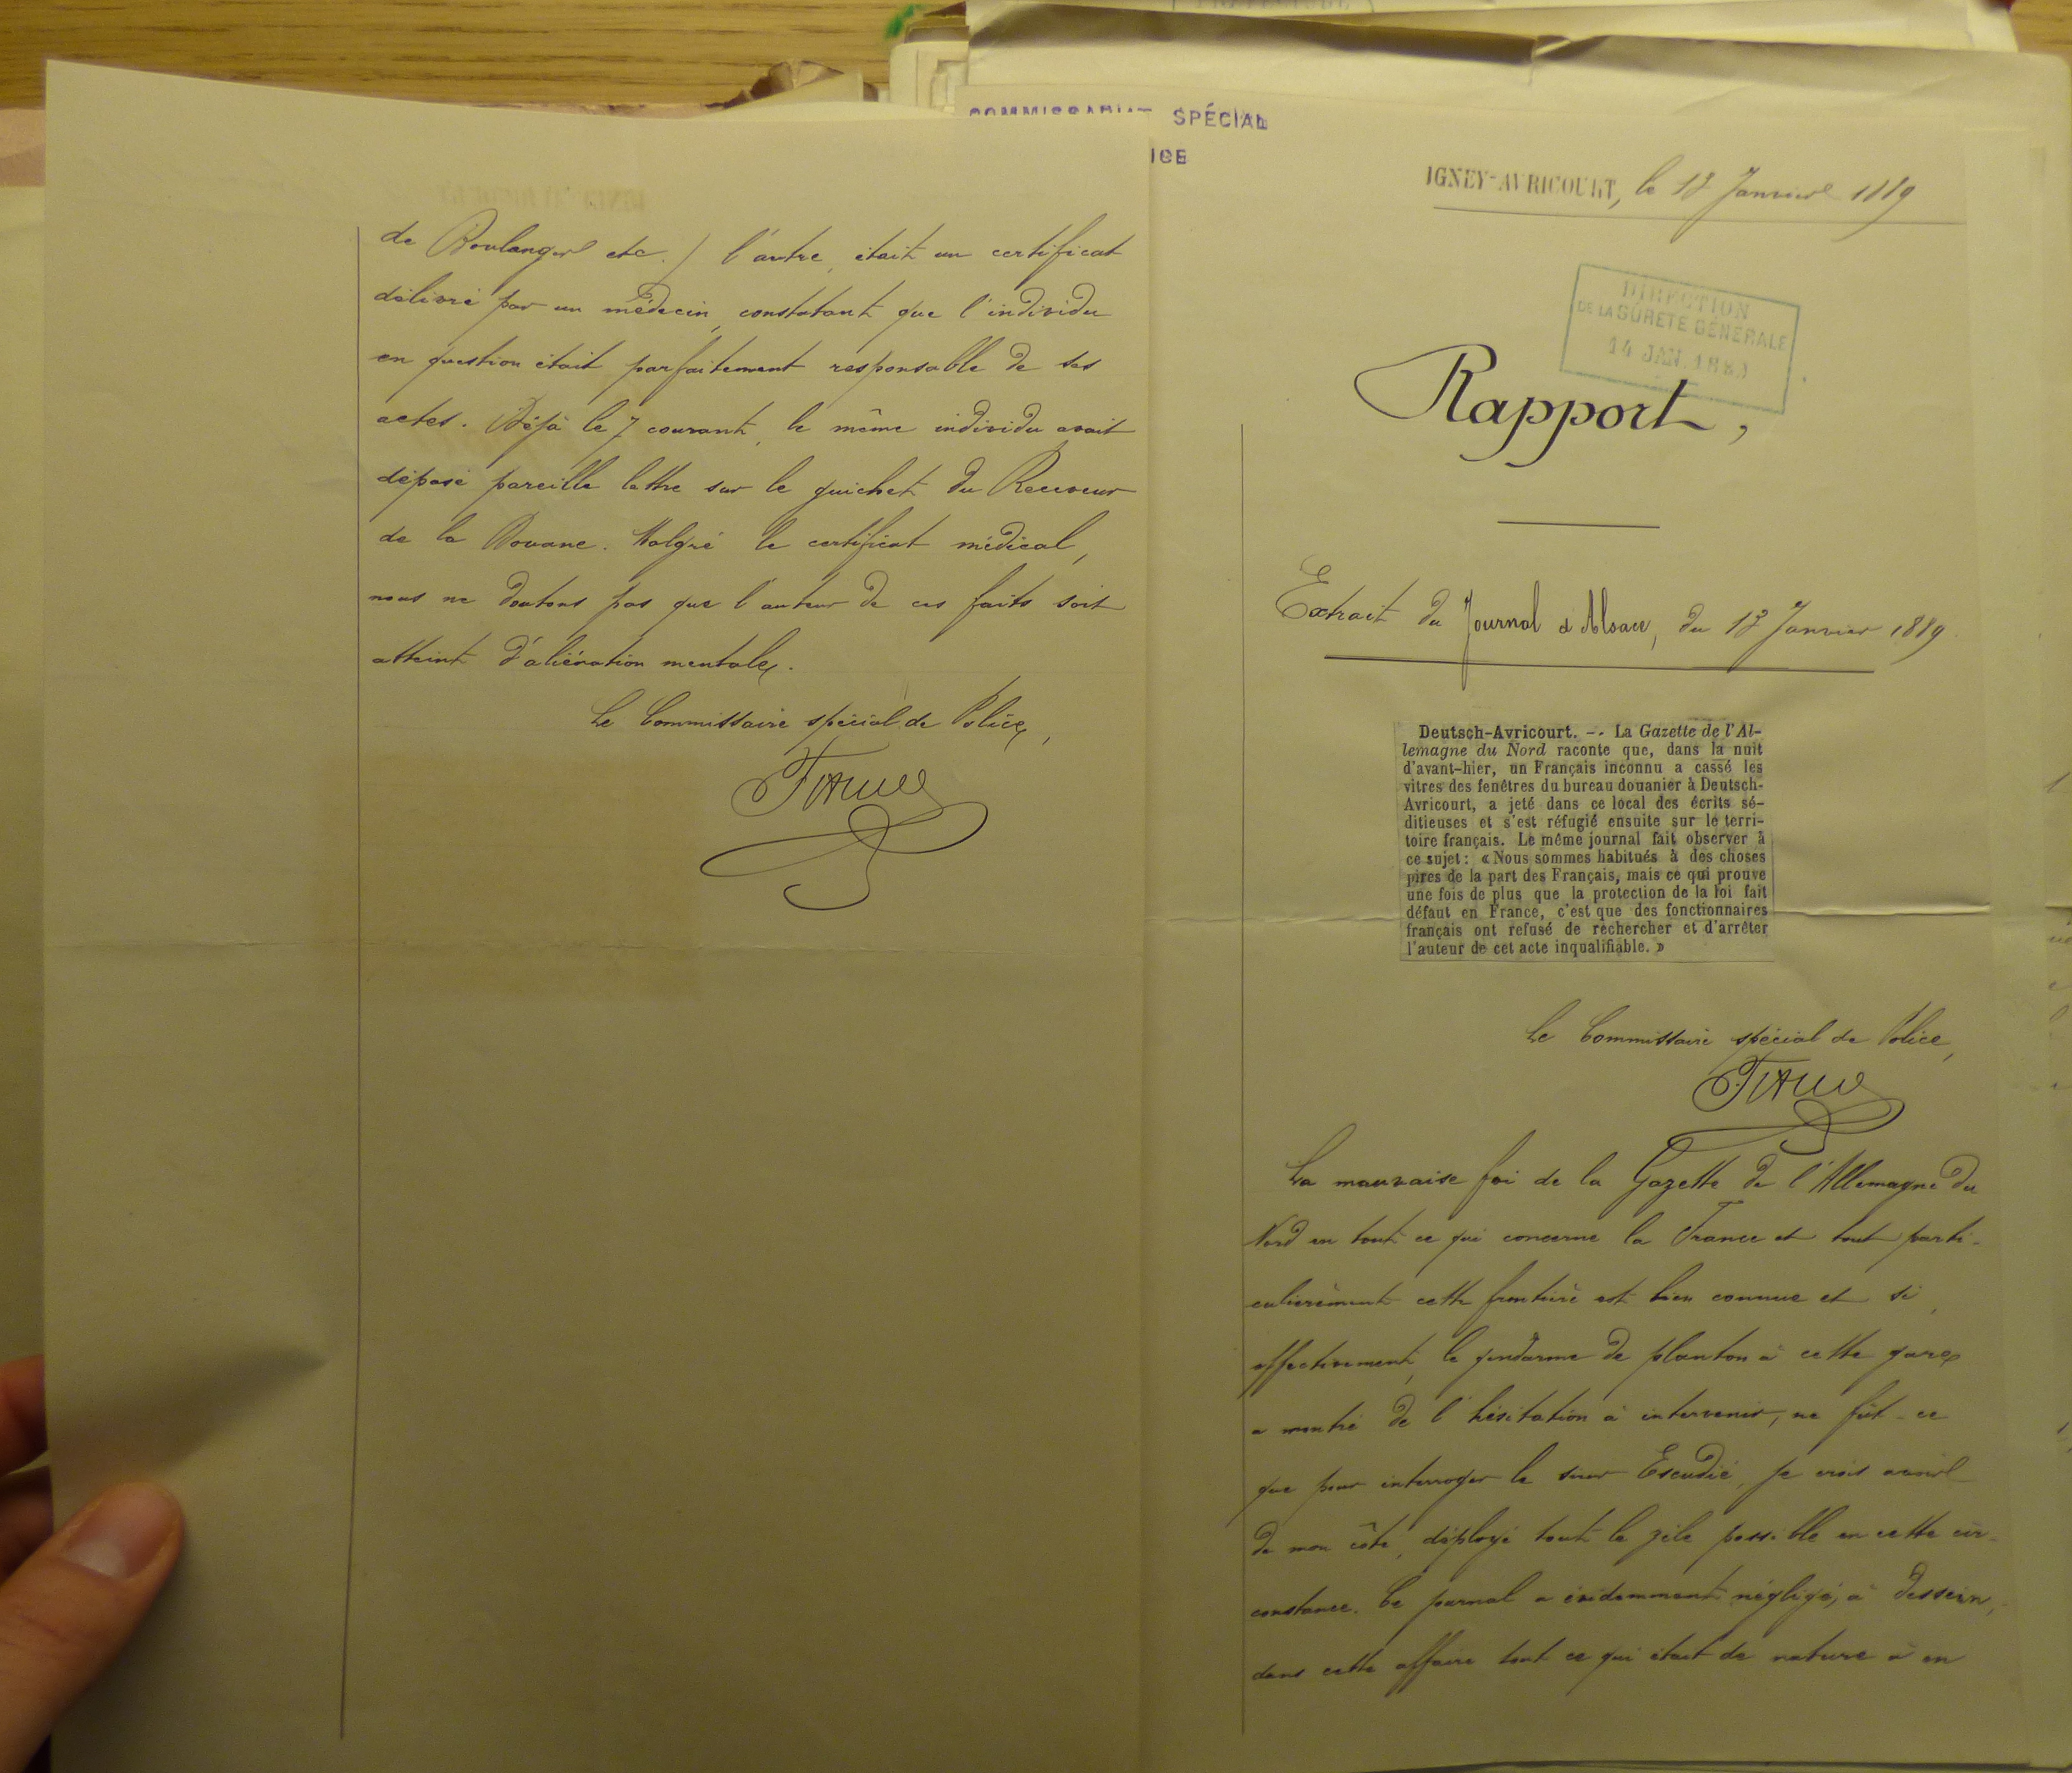 de Boulanger etc.) l'autre, était un certificat
délivré par un médecin, constatant que l'individu
en question était parfaitement responsable de ses
actes. Déjà le 7 courant, le même individu avait
déposé pareille lettre sur le guichet du Receveur
de la Douane. Malgré le certificat médical,
nous ne doutons pas que l'auteur de ces faits soit
atteint d'aliénation mentale.
Le Commissaire spécial de Police,
COMMISSARIAT SPÉCIAL
ICE
IGNEY-AVRICOURT, le 13 Janvier 1889
DIRECTION
DE LA SÛRETÉ GÉNÉRALE
14 JAN. 1889
Rapport,
Extrait du Journal d'Alsace, du 13 Janvier 1889
Deutsch-Avricourt. -- La Gazette de l'Al-
lemagne du Nord raconte que, dans la nuit
d'avant-hier, un Français inconnu a cassé les
vitres des fenêtres du bureau douanier à Deutsch-
Avricourt, a jeté dans ce local des écrits sé-
ditieuses et s'est réfugié ensuite sur le terri-
toire français. Le même journal fait observer à
ce sujet : « Nous sommes habitués à des choses
pires de la part des Français, mais ce qui prouve
une fois de plus que la protection de la loi fait
défaut en France, c'est que des fonctionnaires
français ont refusé de rechercher et d'arrêter
l'auteur de cet acte inqualifiable. »
Le Commissaire spécial de Police,
La mauvaise foi de la Gazette de l'Allemagne du
Nord en tout ce qui concerne la France et tout parti-
culièrement cette frontière est bien connue et si,
effectivement, le gendarme de planton à cette gare
a montré de l'hésitation à intervenir, ne fût-ce
que pour interroger le sieur Escudié, je crois avoir
de mon côté, déployé tout le zèle possible en cette cir-
constance. Ce journal a évidemment négligé, à dessein,
dans cette affaire tout ce qui était de nature à en